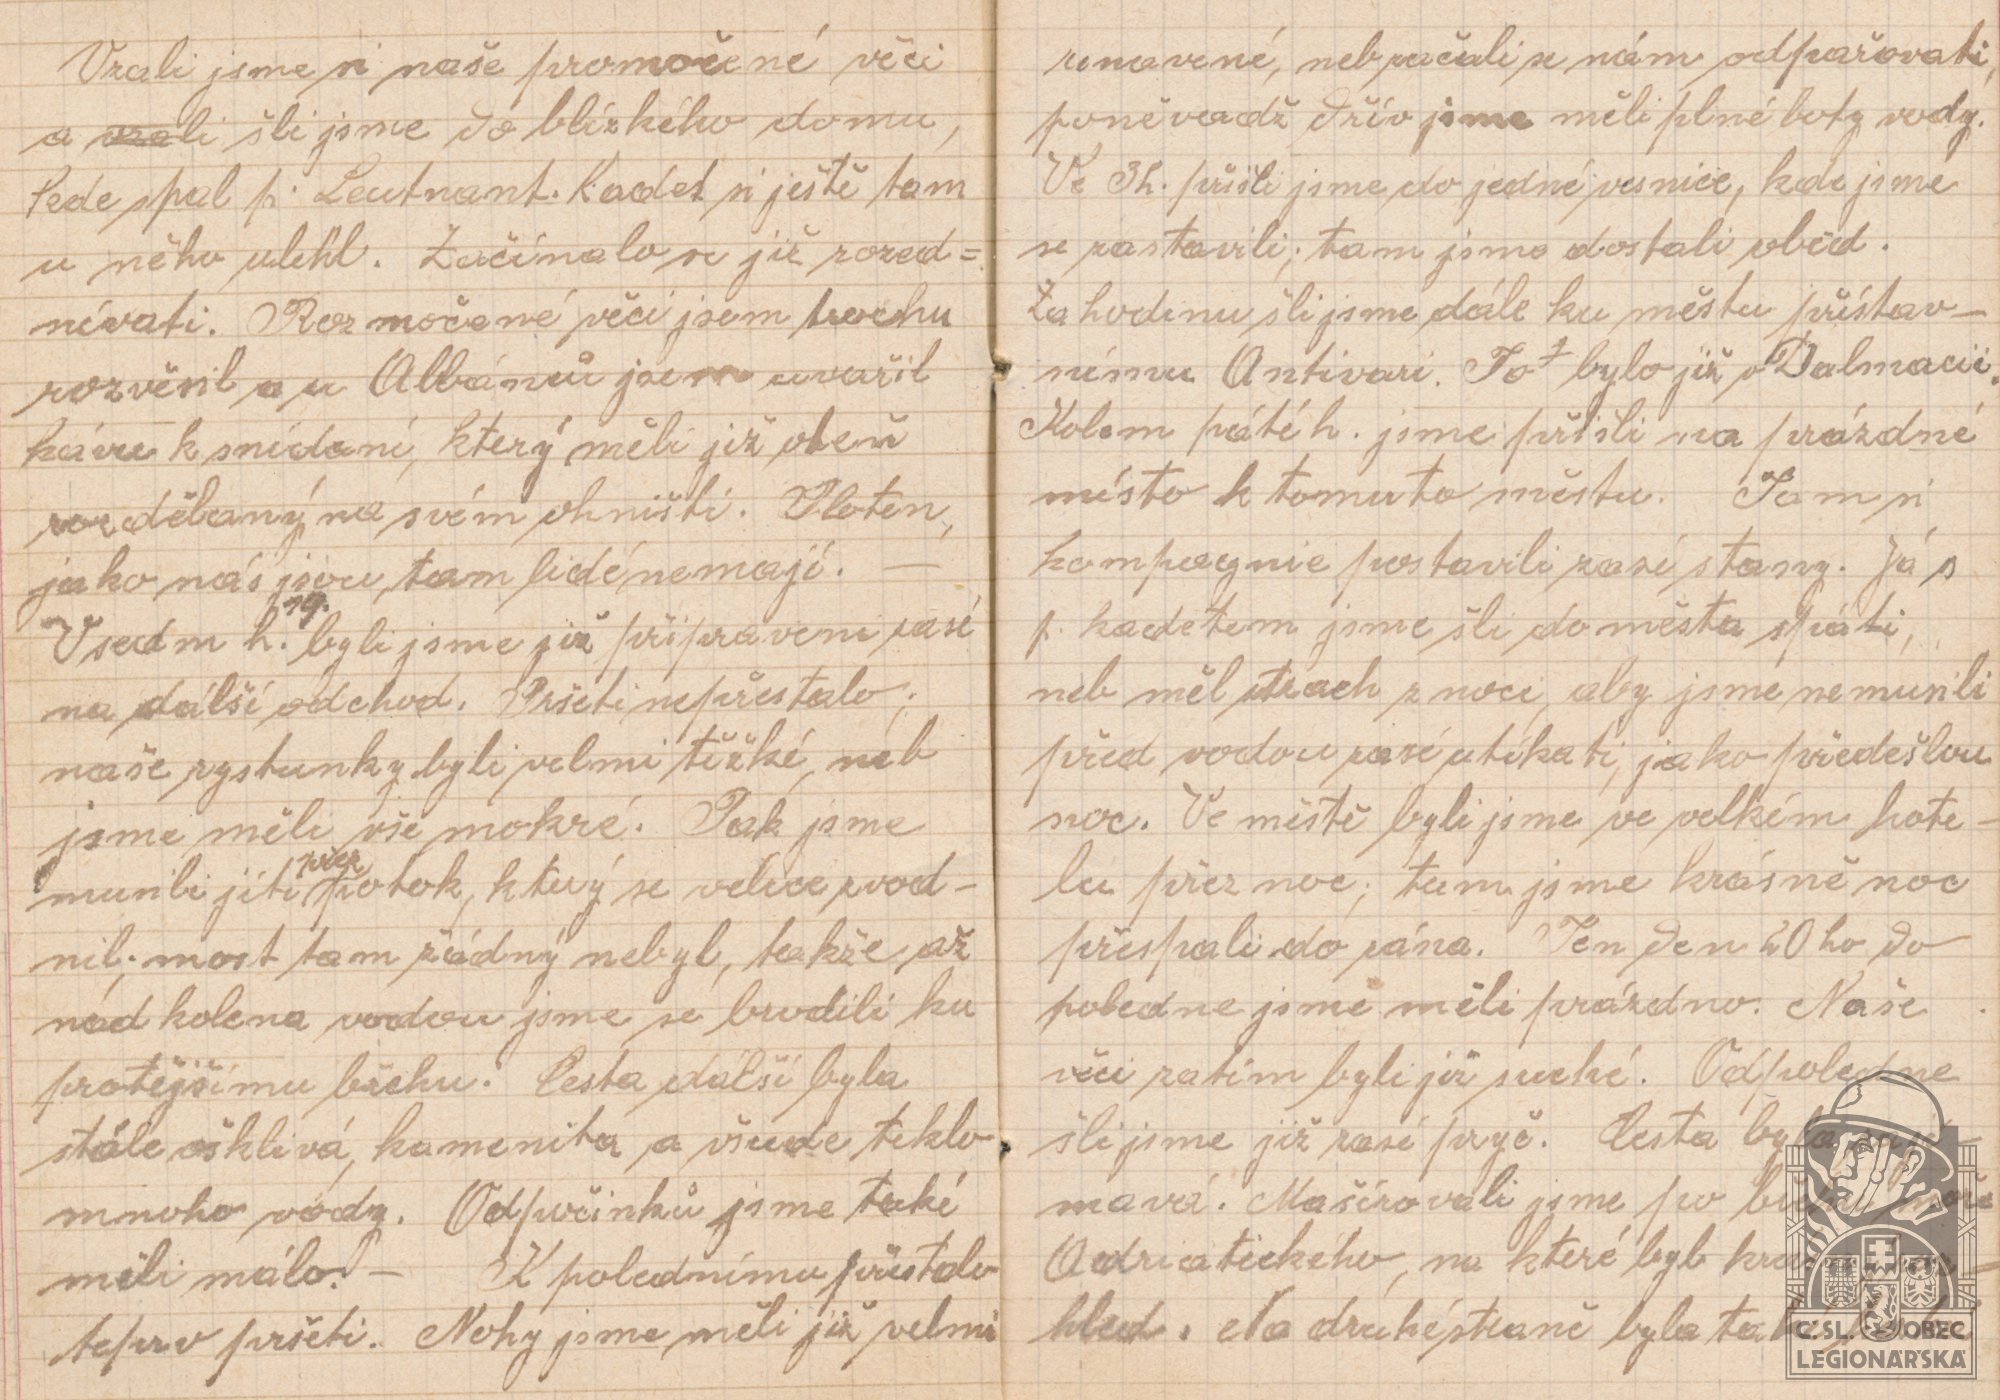 Vzali jsme si naše promočené věci
a vzali šli jsme do blízkého domu,
kde spal p. Leutnant. Kadet si ještě tam
u něho ulehl. Začínalo se již rozed=
nívati. Rozmočené věci jsem trochu
rozvěsil a u Albánců jsem uvařil
kávu k snídani, který měli již oheň
rozdělaný na svém ohništi. Ploten,
jako nás jsou, tam lidé nemají. —
V sedm h. 19. byli jsme již připraveni zasé
na dálší odchod. Pršeti nepřestalo;
naše rystunky byli velmi těžké, neb
jsme měli vše mokré. Pak jsme
musili jíti přez potok, který se velice zvod-
nil; most tam žádný nebyl, takže až
nad kolena vodou jsme se brodili ku
protějšímu břehu. Cesta dálší byla
stále ošklivá, kamenita a všude teklo
mnoho vody. Odpočinků jsme také
měli málo. — K polednímu přestalo
teprv pršeti. Nohy jsme měli již velmi
zmavené, neb začali se nám odpařovati,
poněvadž dřív jsme měli plné boty vody.
Ve 3h. přišli jsme do jedné vesnice, kde jsme
se zastavili; tam jsme dostali oběd.
Za hodinu šli jsme dále ku městu přístav-
nímu Antivari. To bylo již v Dalmacii.
Kolem páté h. jsme přišli na prázdné
místo k tomuto městu. Tam si
kompagnie postavili zasé stany. Já s
p. kadetem jsme šli do města spáti,
neb měl strach z noci, aby jsme nemusili
před vodou zasé utíkati, jako předešlou
noc. Ve městě byli jsme ve velkém hote-
lu přez noc; tam jsme krásně noc
přespali do rána. Ten den 20ho do
poledne jsme měli prázdno. Naše
věci zatím byli již suché. Odpoledne
šli jsme již zasé pryč. Cesta byla
mavá. Mašírovali jsme po břehu moře
Adriatického, na které byl krásný
hled. Na druhé straně byla také
Č.SL. OBEC
LEGIONÁŘSKÁ